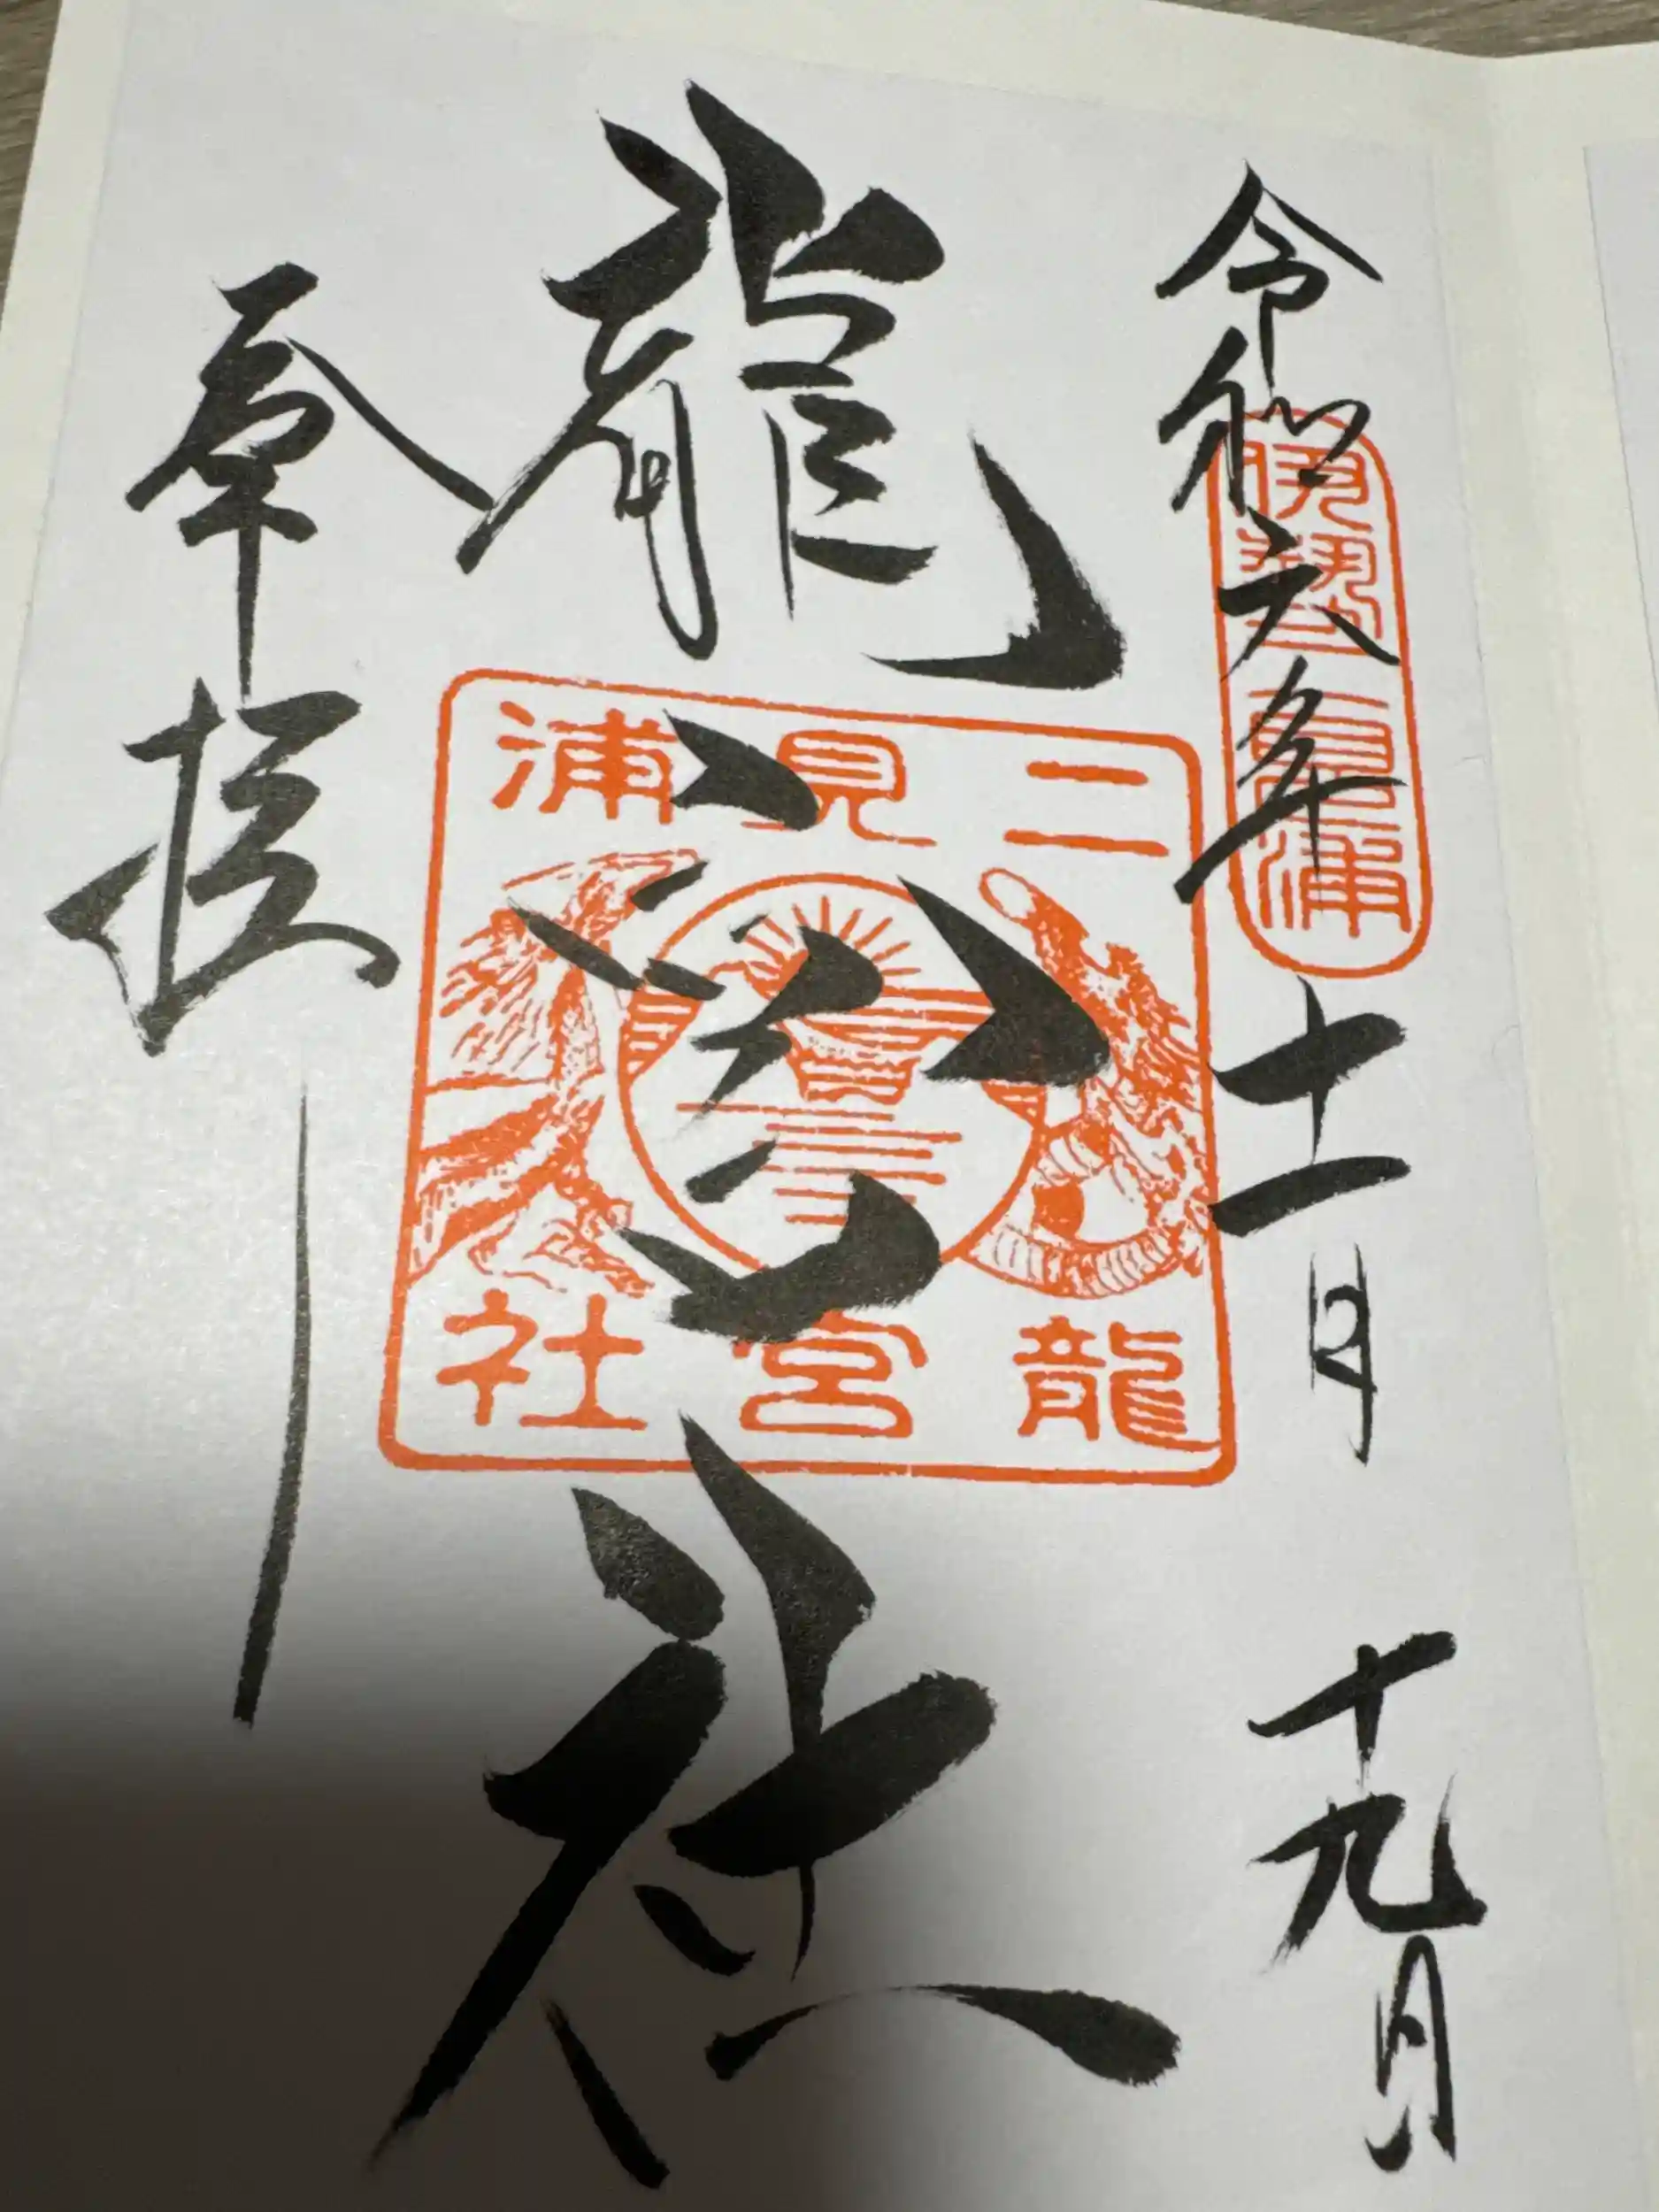 令和六年十一月十九日
伊勢二見浦
龍宮社
二見浦
龍宮社
奉拝